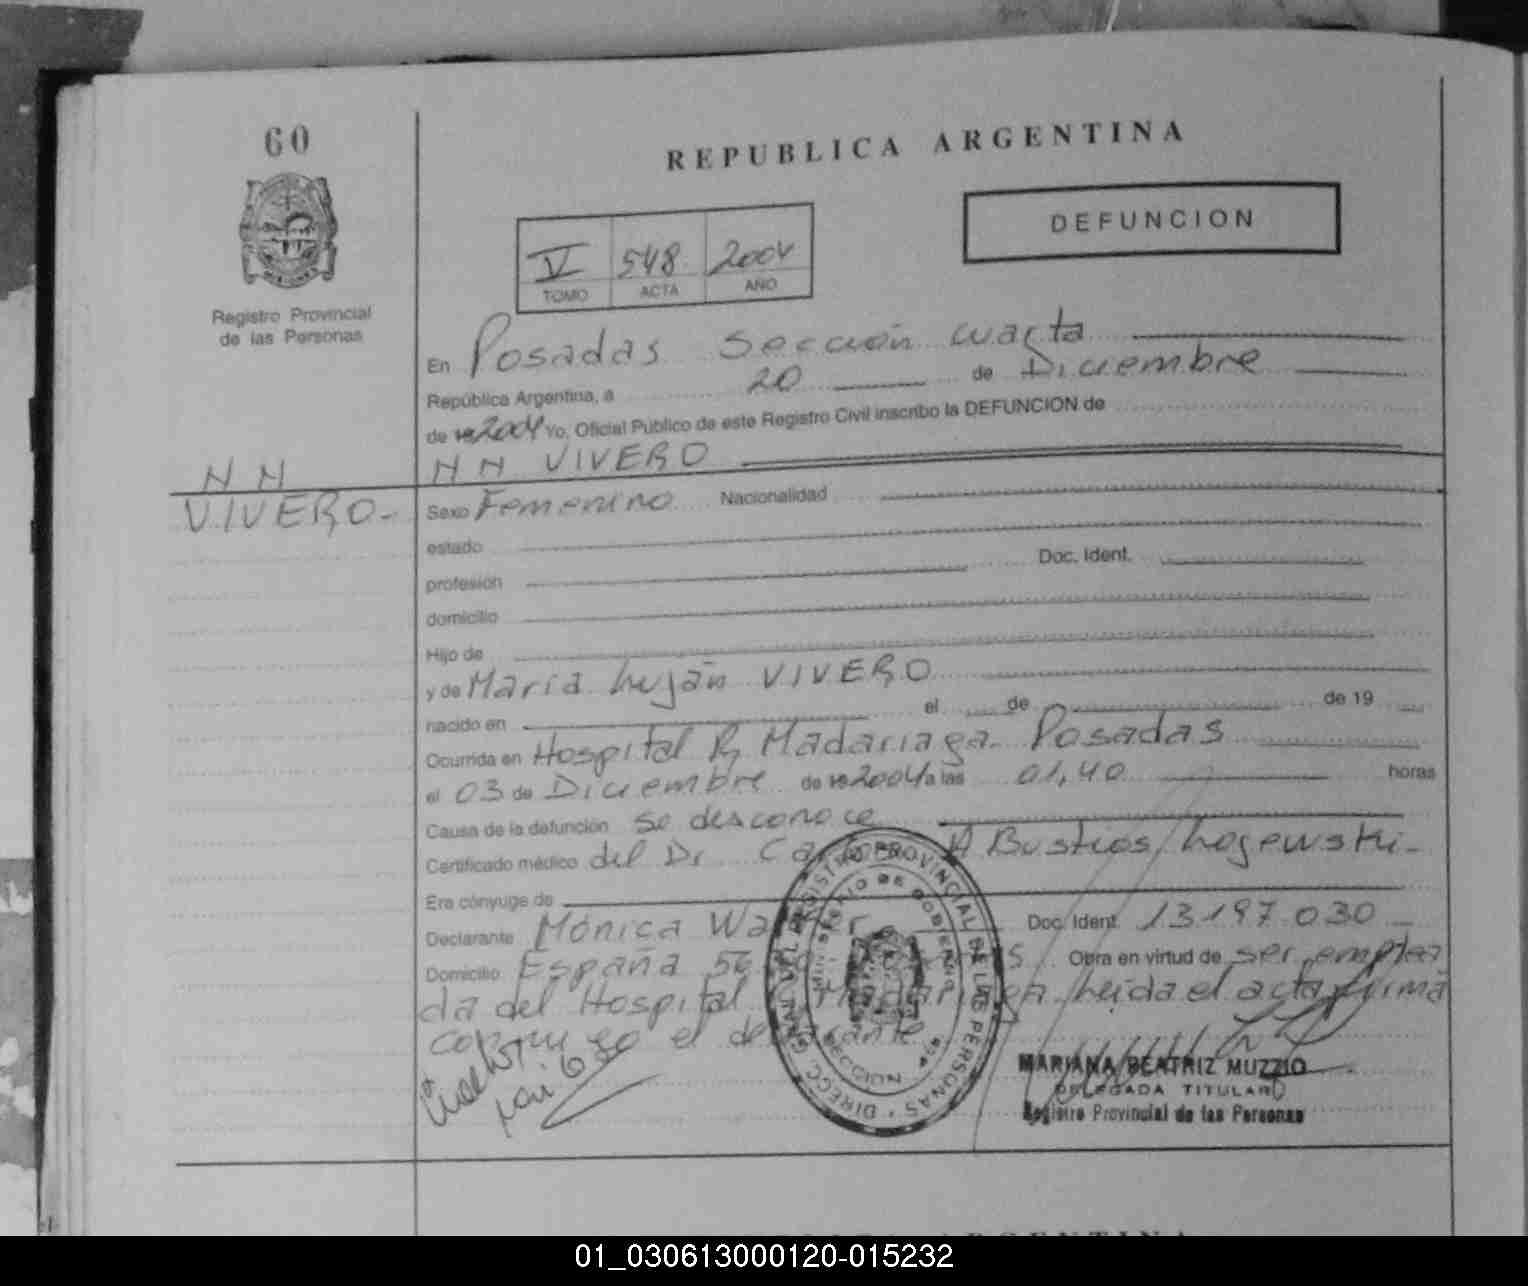 60
REPUBLICA ARGENTINA
DEFUNCION
V 548 2004
TOMO ACTA AÑO
Registro Provincial
de las Personas
En Posadas Sección cuarta
República Argentina, a 20 de Diciembre
de 19 2004 Yo, Oficial Público de este Registro Civil inscribo la DEFUNCION de
N N VIVERO
N N
VIVERO-
Sexo Femenino Nacionalidad
estado
profesión Doc. Ident.
domicilio
Hijo de
y de María Luján VIVERO
nacido en el de de 19
Ocurrida en Hospital R. Madariaga. Posadas
el 03 de Diciembre de 19 2004 a las 01,40 horas
Causa de la defunción se desconoce
Certificado médico del Dr A Bustios
Era cónyuge de
Declarante Mónica Doc. Ident. 13.197.030
Domicilio España Obra en virtud de ser emplea
da del Hospital Madariaga. Leida el acta firma
el
DIRECC. GRAL. DEL REGISTRO PROVINCIAL DE LAS PERSONAS
MINISTERIO DE GOBIERNO
SECCION 4ta
MARIANA BEATRIZ MUZZIO
DELEGADA TITULAR
Registro Provincial de las Personas
01_030613000120-015232